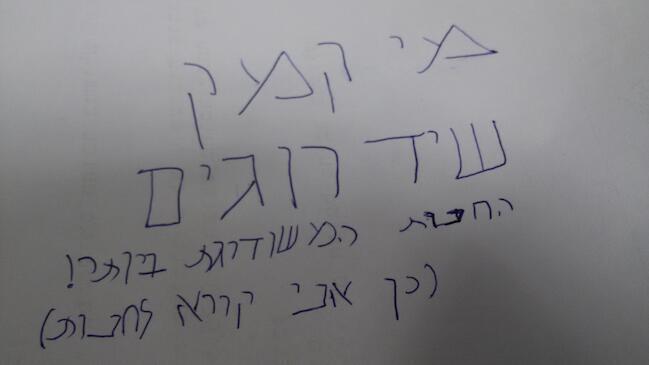 מי קמק
שיד רוגים
החברת המשודיגת ביקתר!
(כך אבי קורא לחברות)